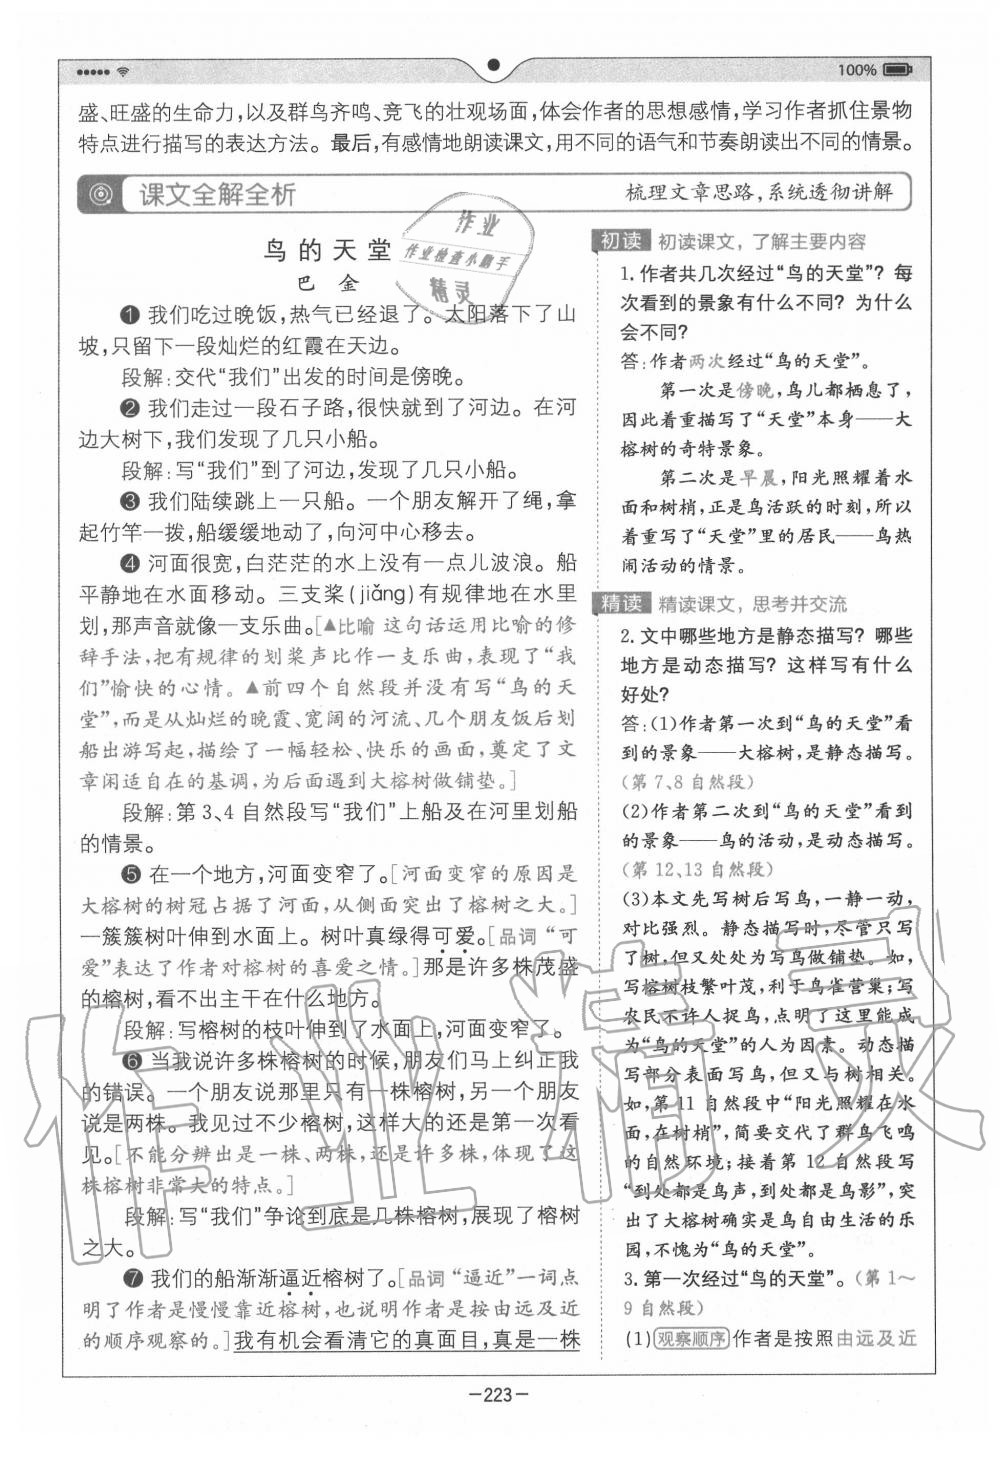 100%
盛、旺盛的生命力,以及群鸟齐鸣、竞飞的壮观场面,体会作者的思想感情,学习作者抓住景物
特点进行描写的表达方法。最后,有感情地朗读课文,用不同的语气和节奏朗读出不同的情景。
课文全解全析
梳理文章思路,系统透彻讲解
鸟的天堂
巴 金
❶ 我们吃过晚饭,热气已经退了。太阳落下了山
坡,只留下一段灿烂的红霞在天边。
段解:交代“我们”出发的时间是傍晚。
❷ 我们走过一段石子路,很快就到了河边。在河
边大树下,我们发现了几只小船。
段解:写“我们”到了河边,发现了几只小船。
❸ 我们陆续跳上一只船。一个朋友解开了绳,拿
起竹竿一拨,船缓缓地动了,向河中心移去。
❹ 河面很宽,白茫茫的水上没有一点儿波浪。船
平静地在水面移动。三支桨(jiǎng)有规律地在水里
划,那声音就像一支乐曲。[▲比喻 这句话运用比喻的修
辞手法,把有规律的划桨声比作一支乐曲,表现了“我
们”愉快的心情。▲前四个自然段并没有写“鸟的天
堂”,而是从灿烂的晚霞、宽阔的河流、几个朋友饭后划
船出游写起,描绘了一幅轻松、快乐的画面,奠定了文
章闲适自在的基调,为后面遇到大榕树做铺垫。]
段解:第3、4自然段写“我们”上船及在河里划船
的情景。
❺ 在一个地方,河面变窄了。[河面变窄的原因是
大榕树的树冠占据了河面,从侧面突出了榕树之大。]
一簇簇树叶伸到水面上。树叶真绿得可爱。[品词 “可
爱”表达了作者对榕树的喜爱之情。]那是许多株茂盛
的榕树,看不出主干在什么地方。
段解:写榕树的枝叶伸到了水面上,河面变窄了。
❻ 当我说许多株榕树的时候,朋友们马上纠正我
的错误。一个朋友说那里只有一株榕树,另一个朋友
说是两株。我见过不少榕树,这样大的还是第一次看
见。[不能分辨出是一株、两株,还是许多株,体现了这
株榕树非常大的特点。]
段解:写“我们”争论到底是几株榕树,展现了榕树
之大。
❼ 我们的船渐渐逼近榕树了。[品词 “逼近”一词,点
明了作者是慢慢靠近榕树,也说明作者是按由远及近
的顺序观察的。]我有机会看清它的真面目,真是一株
初读 初读课文，了解主要内容
1. 作者共几次经过“鸟的天堂”? 每
次看到的景象有什么不同? 为什么
会不同?
答:作者两次经过“鸟的天堂”。
第一次是傍晚,鸟儿都栖息了,
因此着重描写了“天堂”本身——大
榕树的奇特景象。
第二次是早晨,阳光照耀着水
面和树梢,正是鸟活跃的时刻,所以
着重写了“天堂”里的居民——鸟热
闹活动的情景。
精读 精读课文，思考并交流
2. 文中哪些地方是静态描写? 哪些
地方是动态描写? 这样写有什么
好处?
答:(1)作者第一次到“鸟的天堂”看
到的景象——大榕树,是静态描写。
(第7、8自然段)
(2)作者第二次到“鸟的天堂”看到
的景象——鸟的活动,是动态描写。
(第12、13自然段)
(3)本文先写树后写鸟,一静一动,
对比强烈。静态描写时,尽管只写
了树,但又处处为写鸟做铺垫。如,
写榕树枝繁叶茂,利于鸟雀营巢;写
农民不许人捉鸟,点明了这里能成
为“鸟的天堂”的人为因素。动态描
写部分表面写鸟,但又与树相关。
如,第11自然段中“阳光照耀在水
面,在树梢”,简要交代了群鸟飞鸣
的自然环境;接着第12自然段写
“到处都是鸟声,到处都是鸟影”,突
出了大榕树确实是鸟自由生活的乐
园,不愧为“鸟的天堂”。
3. 第一次经过“鸟的天堂”。(第1~
9自然段)
(1)观察顺序 作者是按照由远及近
作业
作业检查小助手
精灵
作业精灵
-223-